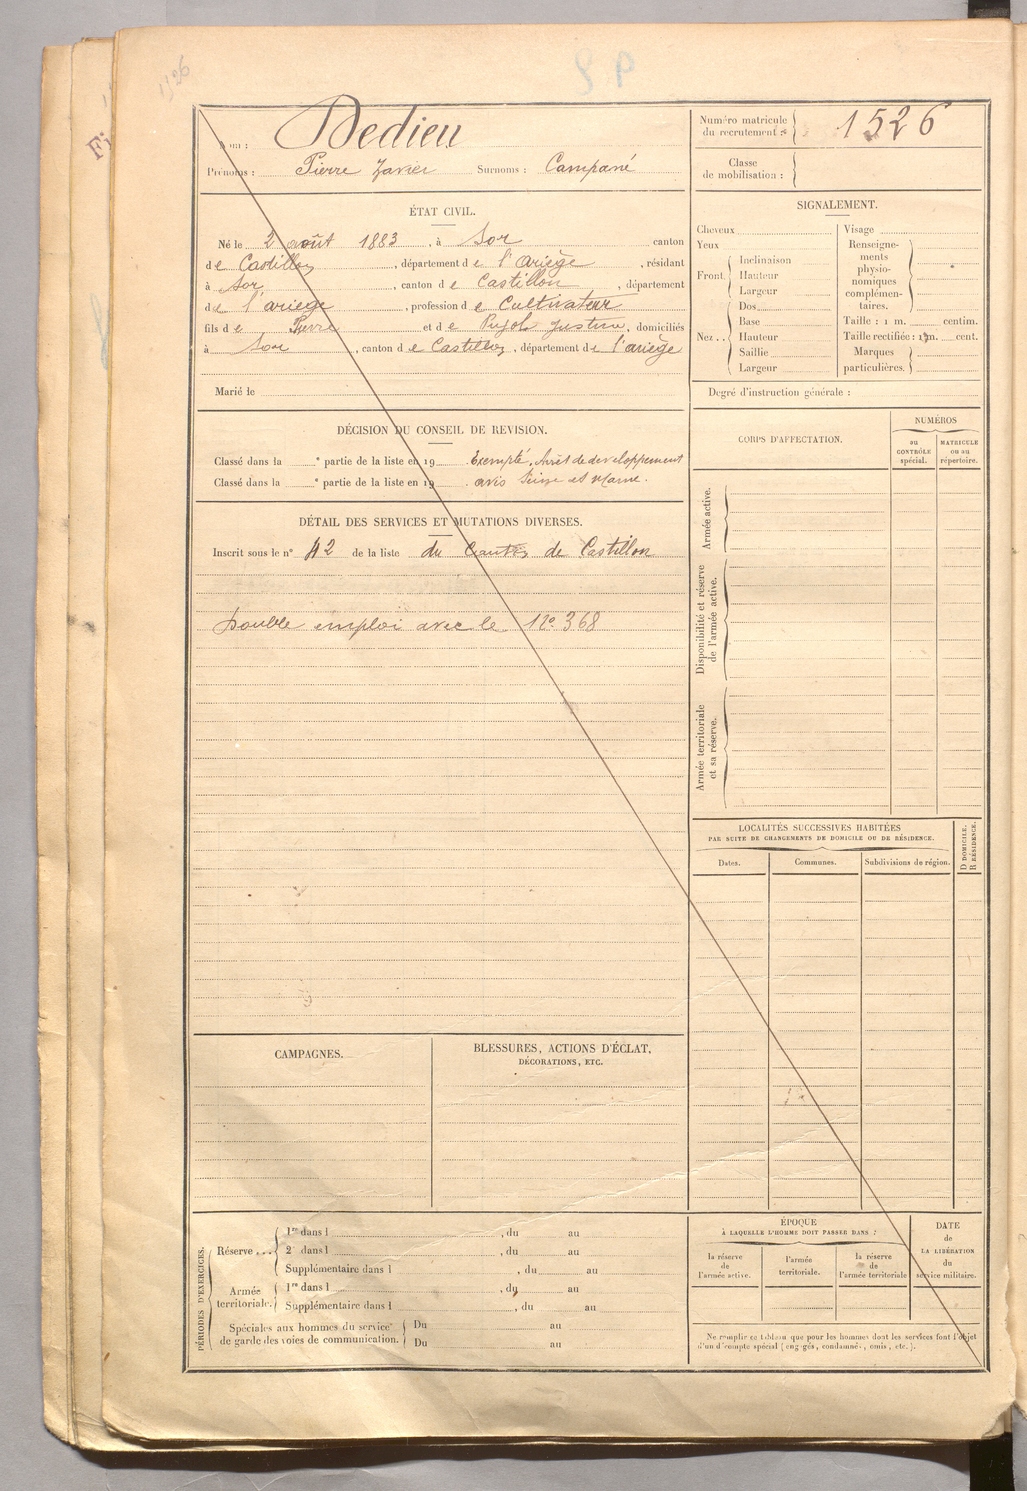 1526
Nom : Dedieu
Prénoms : Pierre Xavier Surnoms : Campané
ÉTAT CIVIL.
Né le 2 août 1883, à Sor canton
de Castillon, département de l'Ariège, résidant
à Sor, canton de Castillon, département
de l'ariège, profession de Cultivateur
fils de Pierre et de Pujol Justine, domiciliés
à Sor, canton de Castillon, département de l'ariège
Marié le
DÉCISION DU CONSEIL DE REVISION.
Classé dans la e partie de la liste en 19 Exempté, Arrêt de developpement
Classé dans la e partie de la liste en 19 avis Seine et Marne.
DÉTAIL DES SERVICES ET MUTATIONS DIVERSES.
Inscrit sous le n° 42 de la liste du Canton de Castillon
Double emploi avec le n° 368
CAMPAGNES.
BLESSURES, ACTIONS D'ÉCLAT,
DÉCORATIONS, ETC.
PÉRIODES D'EXERCICES.
Réserve
1re dans l , du au
2e dans l , du au
Supplémentaire dans l , du au
Armée
territoriale.
1re dans l , du au
Supplémentaire dans l , du au
Spéciales aux hommes du service
de garde des voies de communication.
Du au
Du au
Numéro matricule
du recrutement : 1526
Classe
de mobilisation :
SIGNALEMENT.
Cheveux
Yeux
Front.
Inclinaison
Hauteur
Largeur
Nez
Dos
Base
Hauteur
Saillie
Largeur
Visage
Renseigne-
ments
physio-
nomiques
complémen-
taires.
Taille : 1 m. centim.
Taille rectifiée : 1 m. cent.
Marques
particulières.
Degré d'instruction générale :
CORPS D'AFFECTATION.
NUMÉROS
au
CONTRÔLE
spécial.
MATRICULE
ou au
répertoire.
Armée active.
Disponibilité et réserve
de l'armée active.
Armée territoriale
et sa réserve.
LOCALITÉS SUCCESSIVES HABITÉES
PAR SUITE DE CHANGEMENTS DE DOMICILE OU DE RÉSIDENCE.
Dates.
Communes.
Subdivisions de région.
D DOMICILE.
R RÉSIDENCE.
ÉPOQUE
À LAQUELLE L'HOMME DOIT PASSER DANS :
la réserve
de
l'armée active.
l'armée
territoriale.
la réserve
de
l'armée territoriale
DATE
de
LA LIBÉRATION
du
service militaire.
Ne remplir ce tableau que pour les hommes dont les services font l'objet
d'un décompte spécial (engagés, condamnés, omis, etc.).